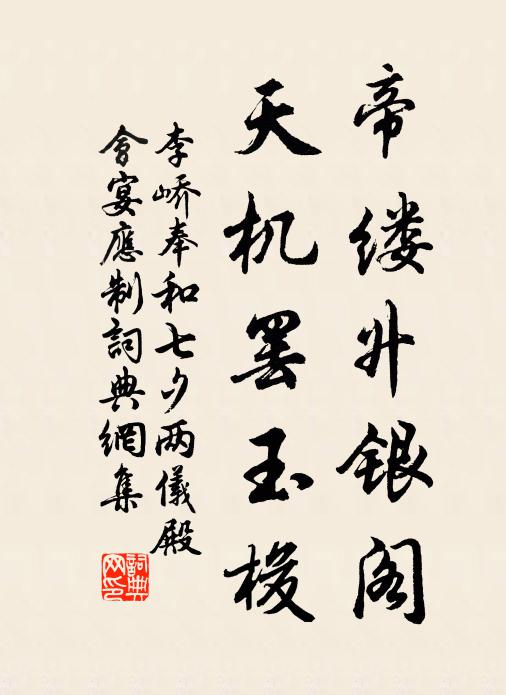 帝缕升银阁
天机罢玉梭
李峤奉和七夕两仪殿
會宴應制詞典網集
詞典
网印